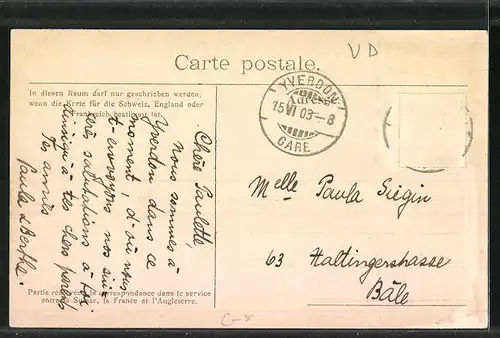 Carte postale.
VD
In diesen Raum darf nur geschrieben werden,
wenn die Karte für die Schweiz, England oder
Frankreich bestimmt ist.
YVERDON
15 VI 03 - 8
GARE
Adresse
Chère Paulette,
Nous sommes à
Yverdon dans ce
moment, d'où nous
t'envoyons nos sincères
salutations à toi
ainsi qu'à tes chers parents
Tes amies
Paula & Berthe.
Melle Paula Siegin
63 Haltingerstrasse
Bâle
Partie réservée à la correspondance dans le service
entre la Suisse, la France et l'Angleterre.
C-x